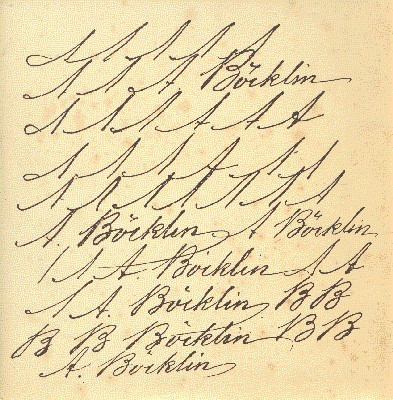 A A A A A
A A A Böcklin
A A A A A A
A A A A A A
A A A A A A A
A. Böcklin A Böcklin
A A A. Böcklin A A
A A. Böcklin B B
B B Böcklin B B
A. Böcklin